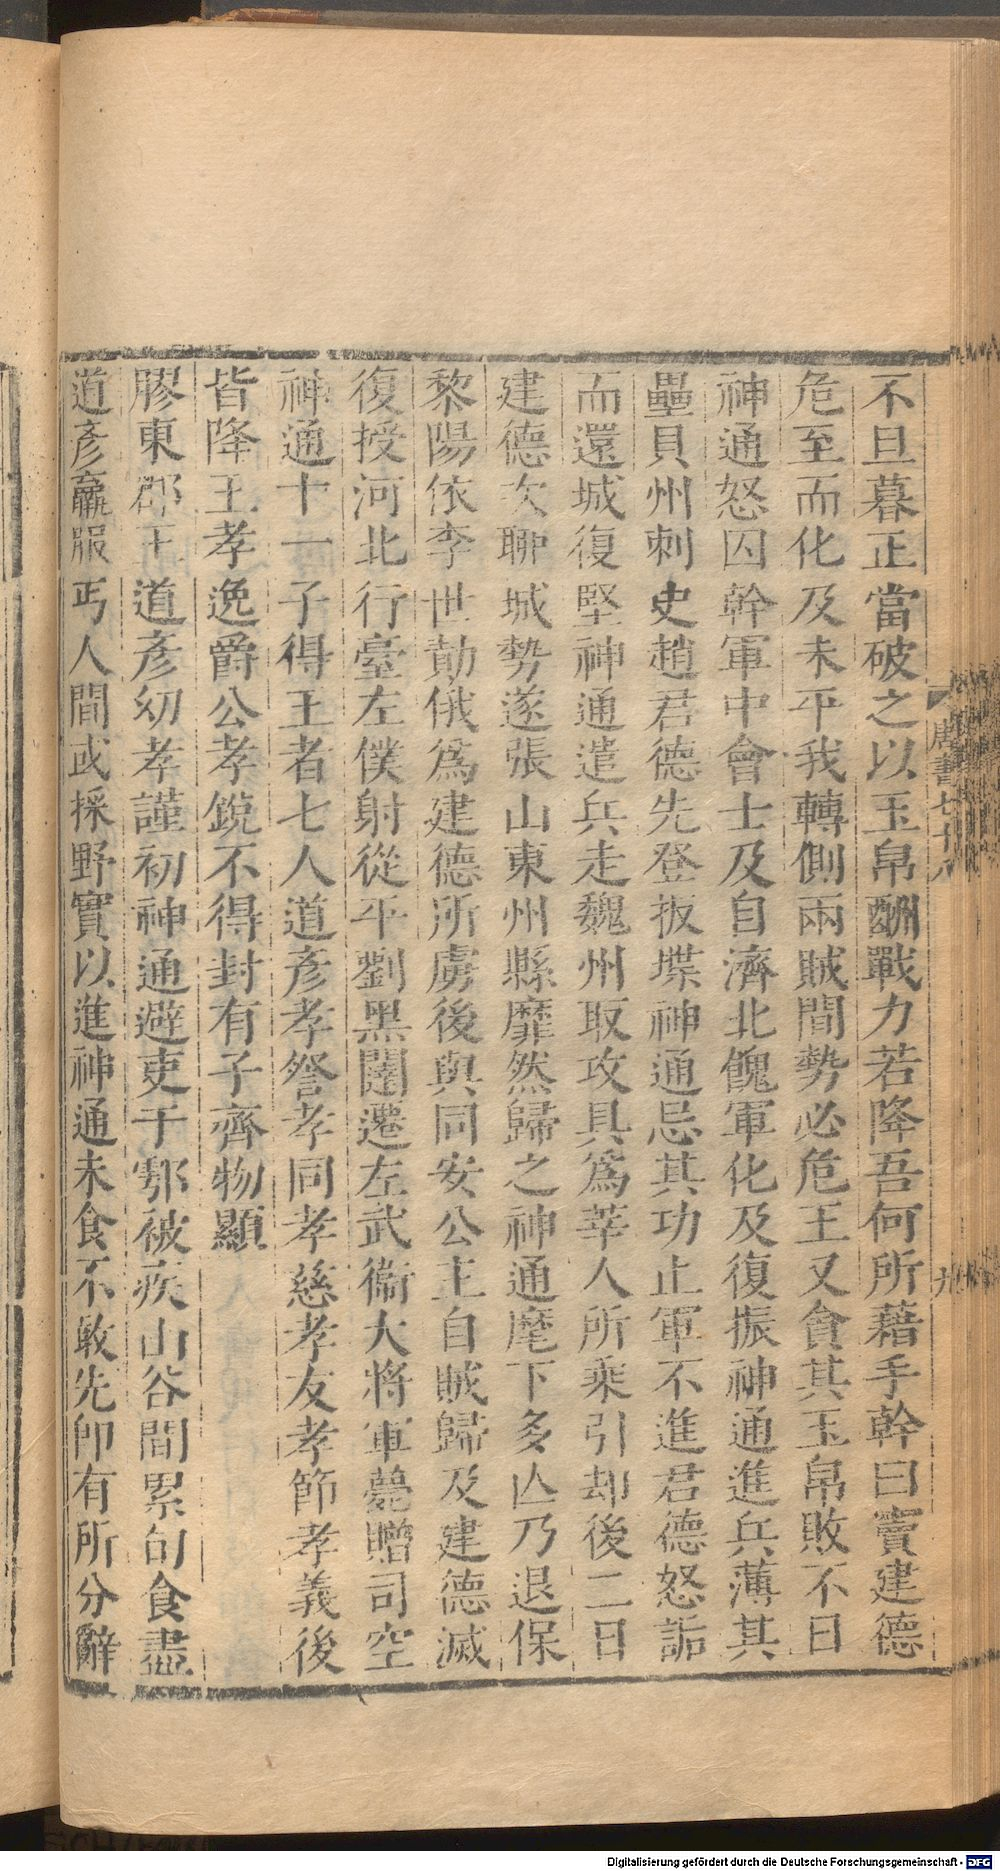 不旦暮正當破之以玉帛酬戰力若降吾何所藉手幹曰竇建德
危至而化及未平我轉側兩賊間勢必危王又貪其玉帛敗不日
神通怒囚幹軍中會士及自濟北餽軍化及復振神通進兵薄其
壘貝州刺史趙君德先登扳堞神通忌其功止軍不進君德怒詬
而還城復堅神通遣兵走魏州取攻具為莘人所乘引却後二日
建德次聊城勢遂張山東州縣靡然歸之神通麾下多亾乃退保
黎陽依李世勣俄為建德所虜後與同安公主自賊歸及建德滅
復授河北行臺左僕射從平劉黑闥遷左武衞大將軍薨贈司空
神通十一子得王者七人道彥孝詧孝同孝慈孝友孝節孝義後
皆降王孝逸爵公孝銳不得封有子齊物顯
膠東郡王道彥幼孝謹初神通避吏于鄠被疾山谷間累旬食盡
道彥羸服丐人間或採野實以進神通未食不敢先卽有所分辭
唐書七十八
九
Digitalisierung gefördert durch die Deutsche Forschungsgemeinschaft - DFG